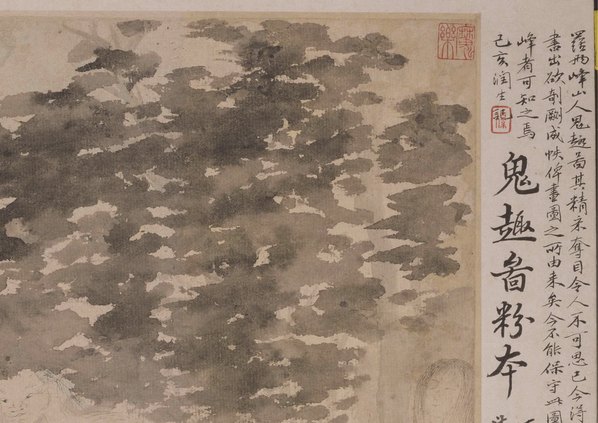 羅两峰山人鬼趣啚其精采奪目令人不可思已今得
畫出欲剞劂成帙俾畫圖之所由来矣今不能保守此圖
峰者可知之焉
己亥润生
鬼趣啚粉本